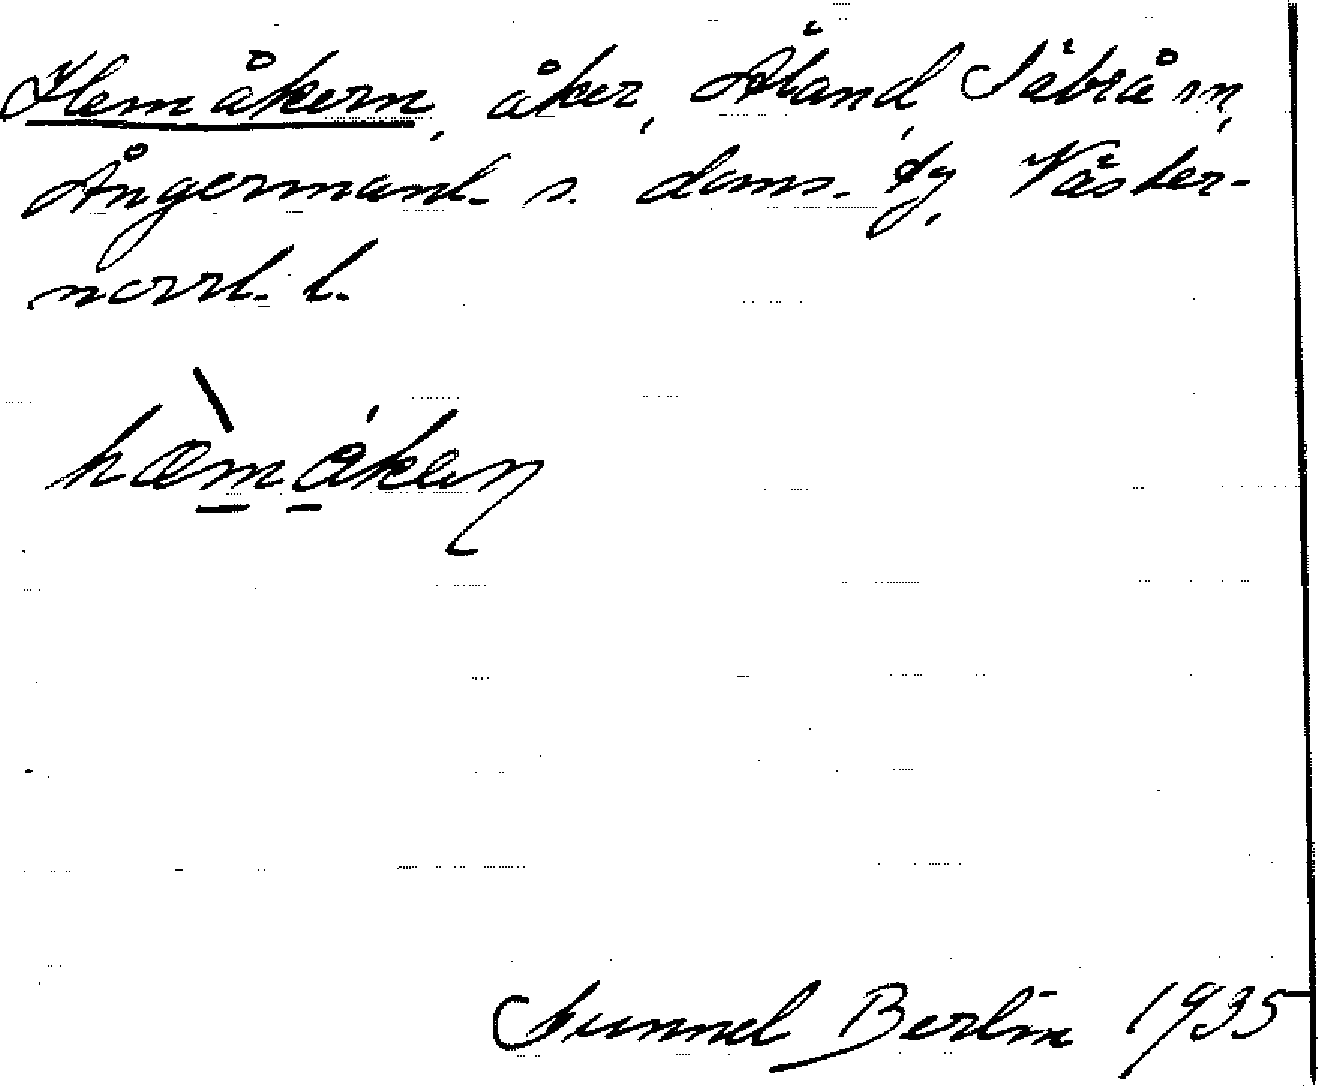 Hemåkern, åker, Åland, Säbrå sn,
Ångermanl. s. doms. tg, Väster-
norrl. l.
hæ̀måkeņ
Gunnel Berlin 1935